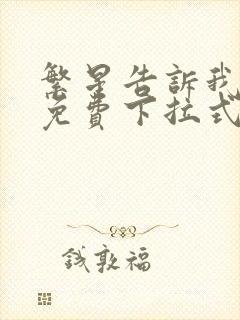 繁星告訴我
免費下拉式
錢敦福